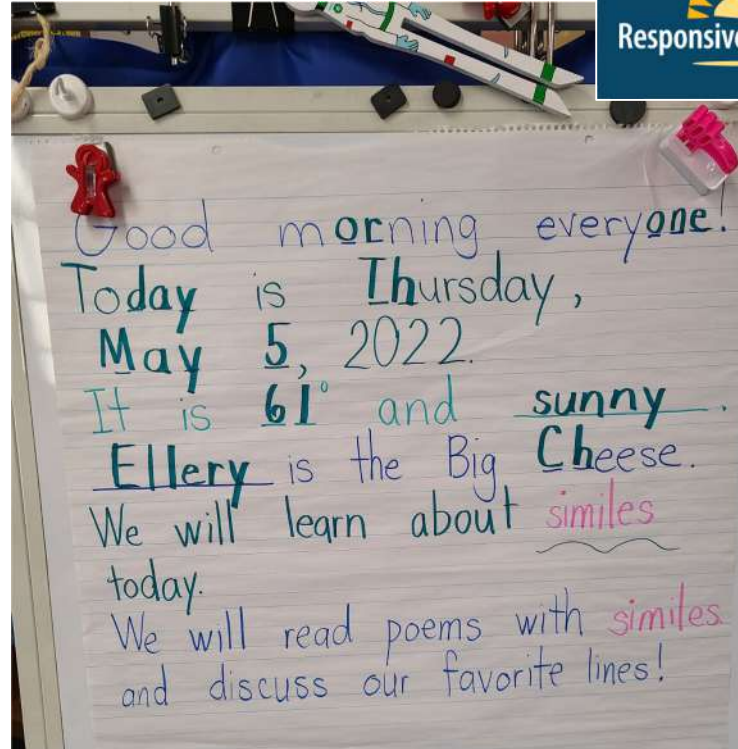 Responsive
Good morning everyone!
Today is Thursday,
May 5, 2022.
It is 61° and sunny.
Ellery is the Big Cheese.
We will learn about similes
today.
We will read poems with similes
and discuss our favorite lines!